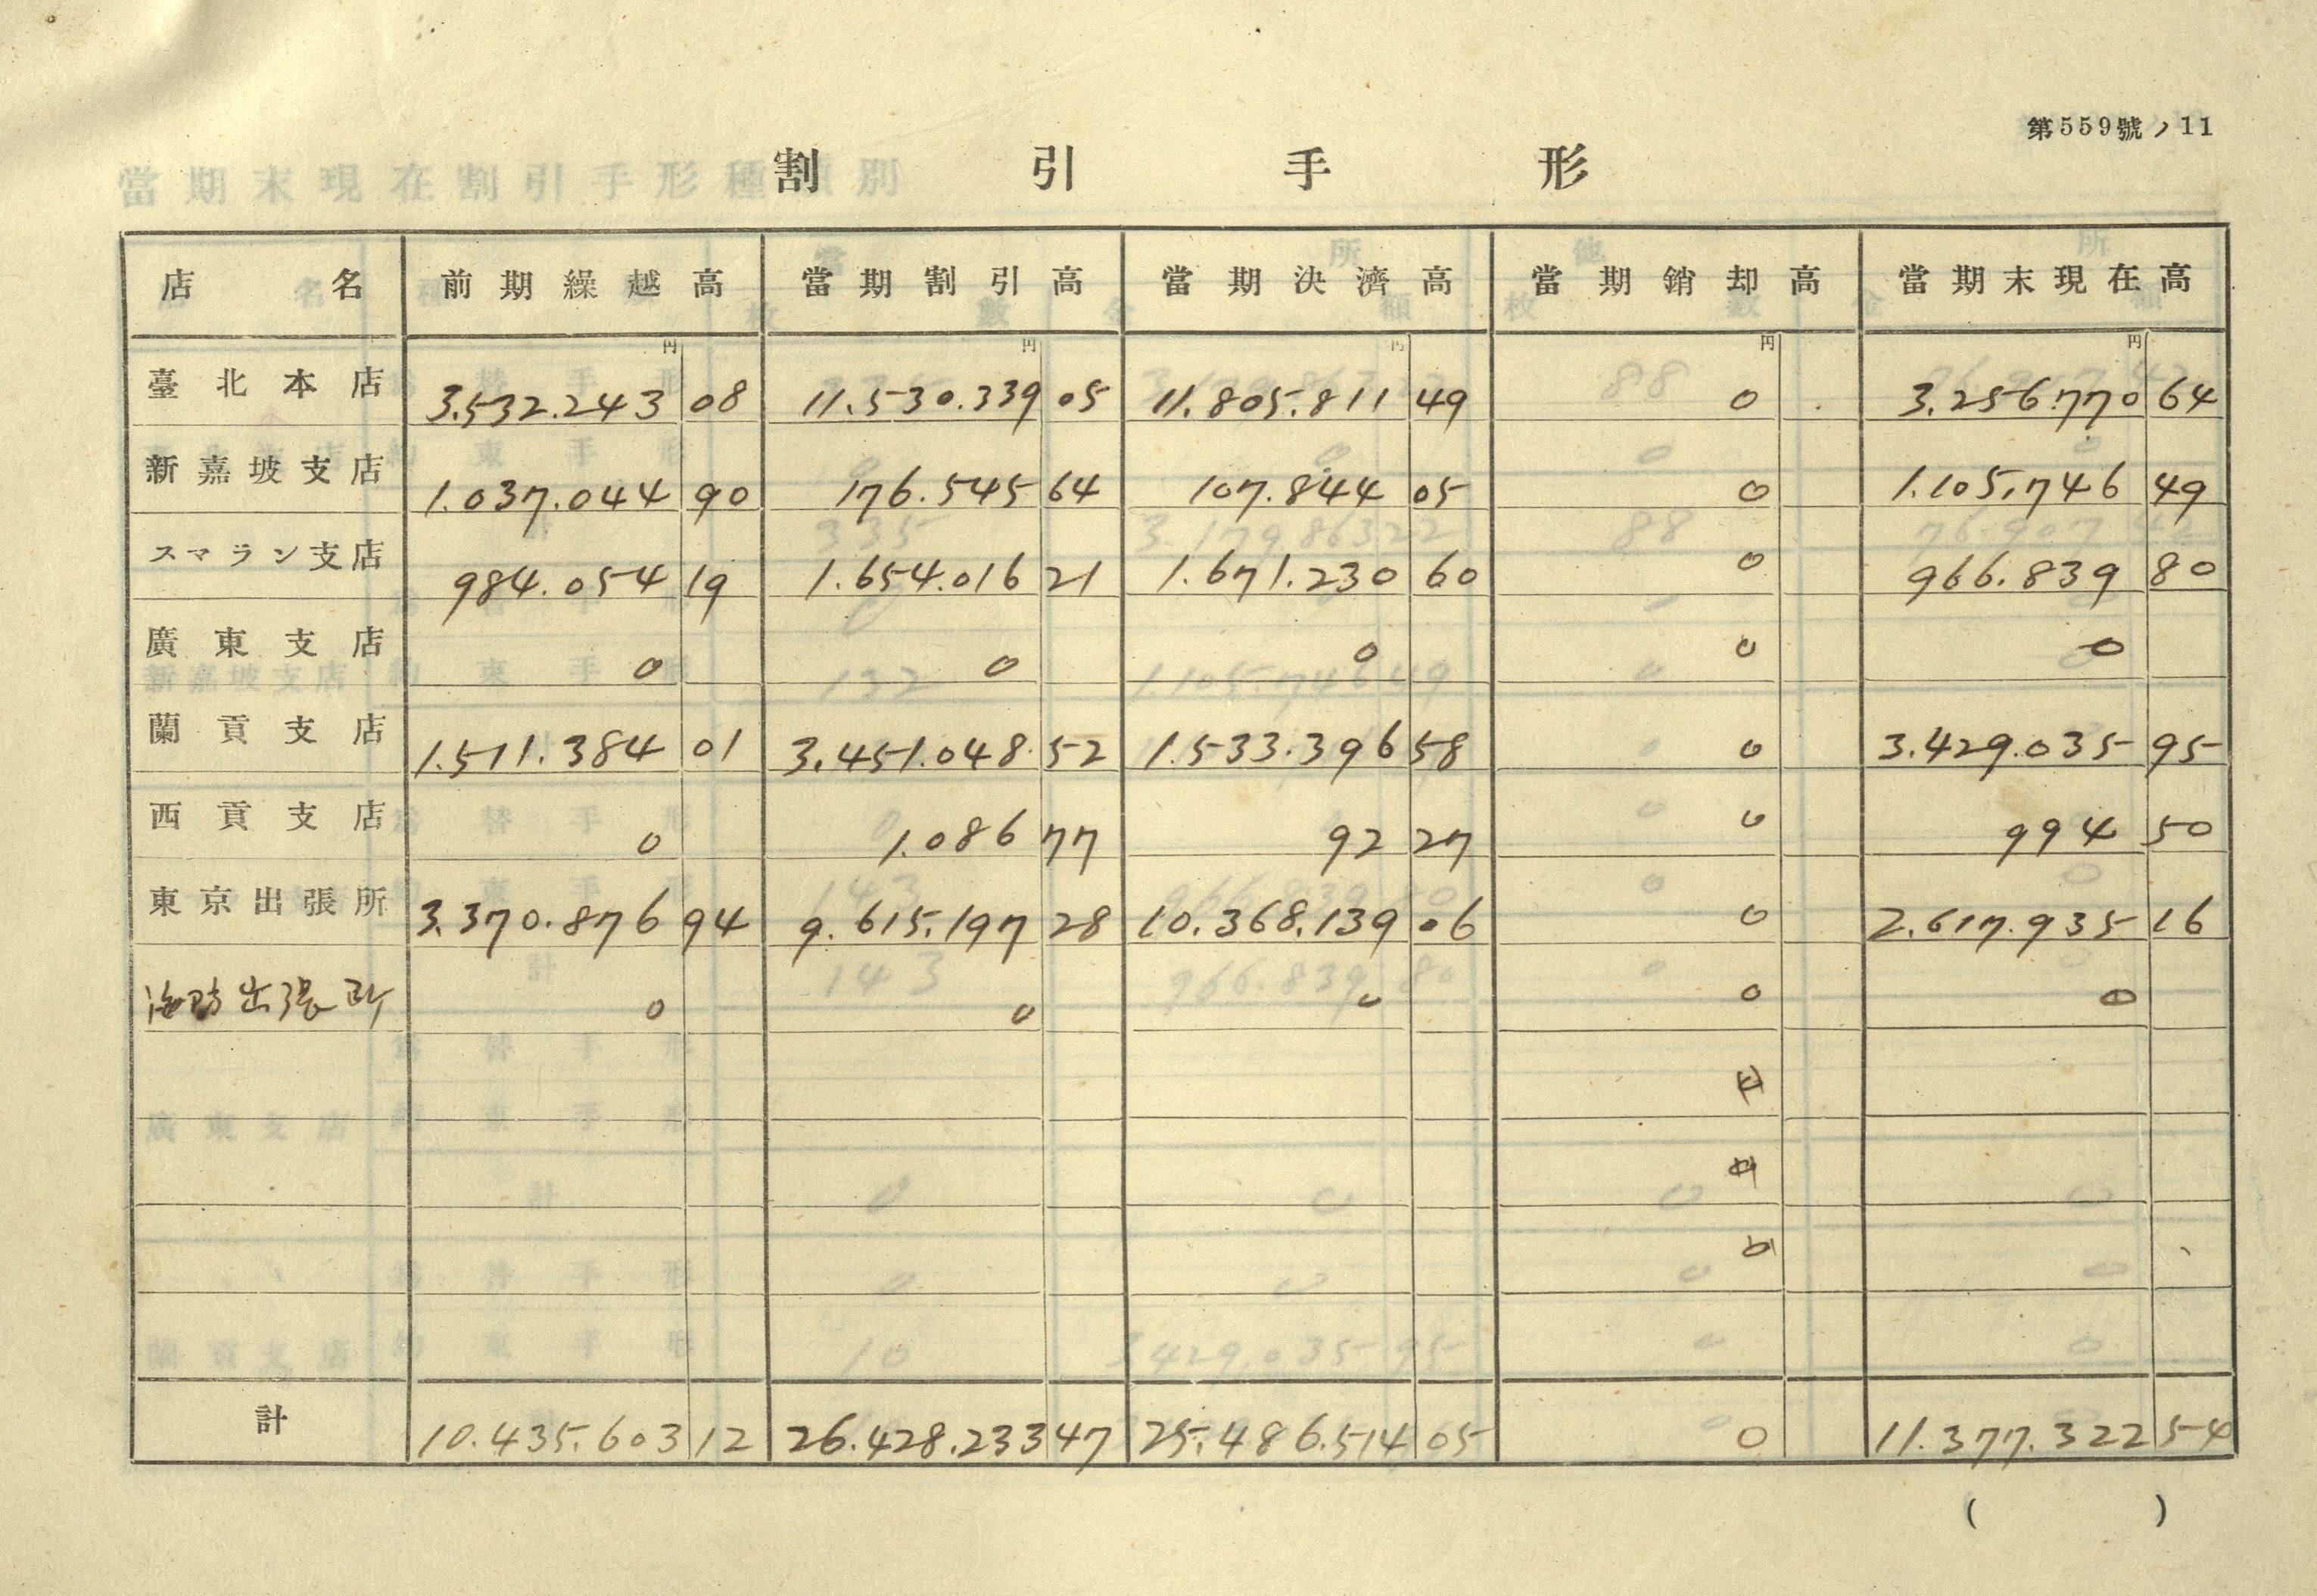 第559號ノ11
割引手形
店名 前期繰越高 當期割引高 當期決濟高 當期銷却高 當期末現在高
円 円 円 円 円
臺北本店 3.532.243 08 11.530.339 05 11.805.811 49 0 3.256.770 64
新嘉坡支店 1.037.044 90 176.545 64 107.844 05 0 1.105.746 49
スマラン支店 984.054 19 1.654.016 21 1.671.230 60 0 966.839 80
廣東支店 0 0 0 0 0
蘭貢支店 1.511.384 01 3.451.048 52 1.533.396 58 0 3.429.035 95
西貢支店 0 1.086 77 92 27 0 994 50
東京出張所 3.370.876 94 9.615.197 28 10.368.139 06 0 2.617.935 16
海防出張所 0 0 0 0 0
計 10.435.603 12 26.428.233 47 25.486.514 05 0 11.377.322 54
( )